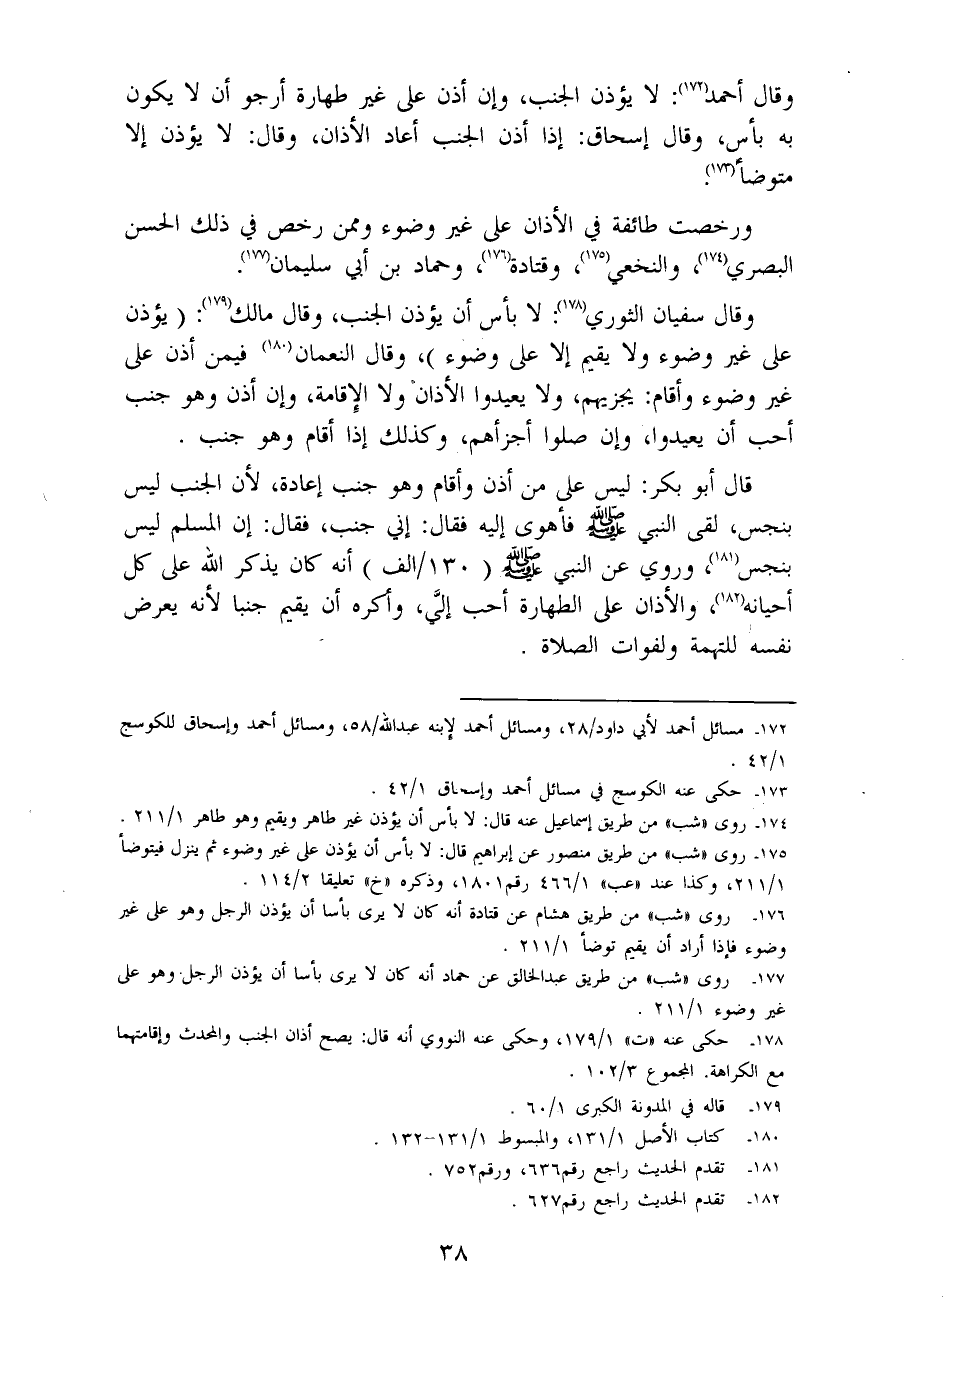 وقال أحمد(١٧٢): لا يؤذن الجنب، وإن أذن على غير طهارة أرجو أن لا يكون
به بأس، وقال إسحاق: إذا أذن الجنب أعاد الأذان، وقال: لا يؤذن إلا
متوضأ(١٧٣).
ورخصت طائفة في الأذان على غير وضوء وممن رخص في ذلك الحسن
البصري(١٧٤)، والنخعي(١٧٥)، وقتادة(١٧٦)، وحماد بن أبي سليمان(١٧٧).
وقال سفيان الثوري(١٧٨): لا بأس أن يؤذن الجنب، وقال مالك(١٧٩): ( يؤذن
على غير وضوء ولا يقيم إلا على وضوء )، وقال النعمان(١٨٠) فيمن أذن على
غير وضوء وأقام: يجزيهم، ولا يعيدوا الأذان ولا الإقامة، وإن أذن وهو جنب
أحب أن يعيدوا، وإن صلوا أجزأهم، وكذلك إذا أقام وهو جنب .
قال أبو بكر: ليس على من أذن وأقام وهو جنب إعادة، لأن الجنب ليس
بنجس، لقى النبي ﷺ فأهوى إليه فقال: إني جنب، فقال: إن المسلم ليس
بنجس(١٨١)، وروي عن النبي ﷺ ( ١٣٠/الف ) أنه كان يذكر الله على كل
أحيانه(١٨٢)، والأذان على الطهارة أحب إليَّ، وأكره أن يقيم جنبا لأنه يعرض
نفسه للتهمة ولفوات الصلاة .
١٧٢ـ مسائل أحمد لأبي داود/٢٨، ومسائل أحمد لإبنه عبدالله/٥٨، ومسائل أحمد وإسحاق للكوسج
٤٢/١ .
١٧٣ـ حكى عنه الكوسج في مسائل أحمد وإسحاق ٤٢/١ .
١٧٤ـ روى «شب» من طريق إسماعيل عنه قال: لا بأس أن يؤذن غير طاهر ويقيم وهو طاهر ٢١١/١ .
١٧٥ـ روى «شب» من طريق منصور عن إبراهيم قال: لا بأس أن يؤذن على غير وضوء ثم ينزل فيتوضأ
٢١١/١، وكذا عند «عب» ٤٦٦/١ رقم١٨٠١، وذكره «خ» تعليقا ١١٤/٢ .
١٧٦ـ روى «شب» من طريق هشام عن قتادة أنه كان لا يرى بأسا أن يؤذن الرجل وهو على غير
وضوء فإذا أراد أن يقيم توضأ ٢١١/١ .
١٧٧ـ روى «شب» من طريق عبدالخالق عن حماد أنه كان لا يرى بأسا أن يؤذن الرجل وهو على
غير وضوء ٢١١/١ .
١٧٨ـ حكى عنه «ت» ١٧٩/١، وحكى عنه النووي أنه قال: يصح أذان الجنب والمحدث وإقامتهما
مع الكراهة. المجموع ١٠٢/٣ .
١٧٩ـ قاله في المدونة الكبرى ٦٠/١ .
١٨٠ـ كتاب الأصل ١٣١/١، والمبسوط ١٣١/١–١٣٢ .
١٨١ـ تقدم الحديث راجع رقم٦٣٦، ورقم٧٥٢ .
١٨٢ـ تقدم الحديث راجع رقم٦٢٧ .
٣٨